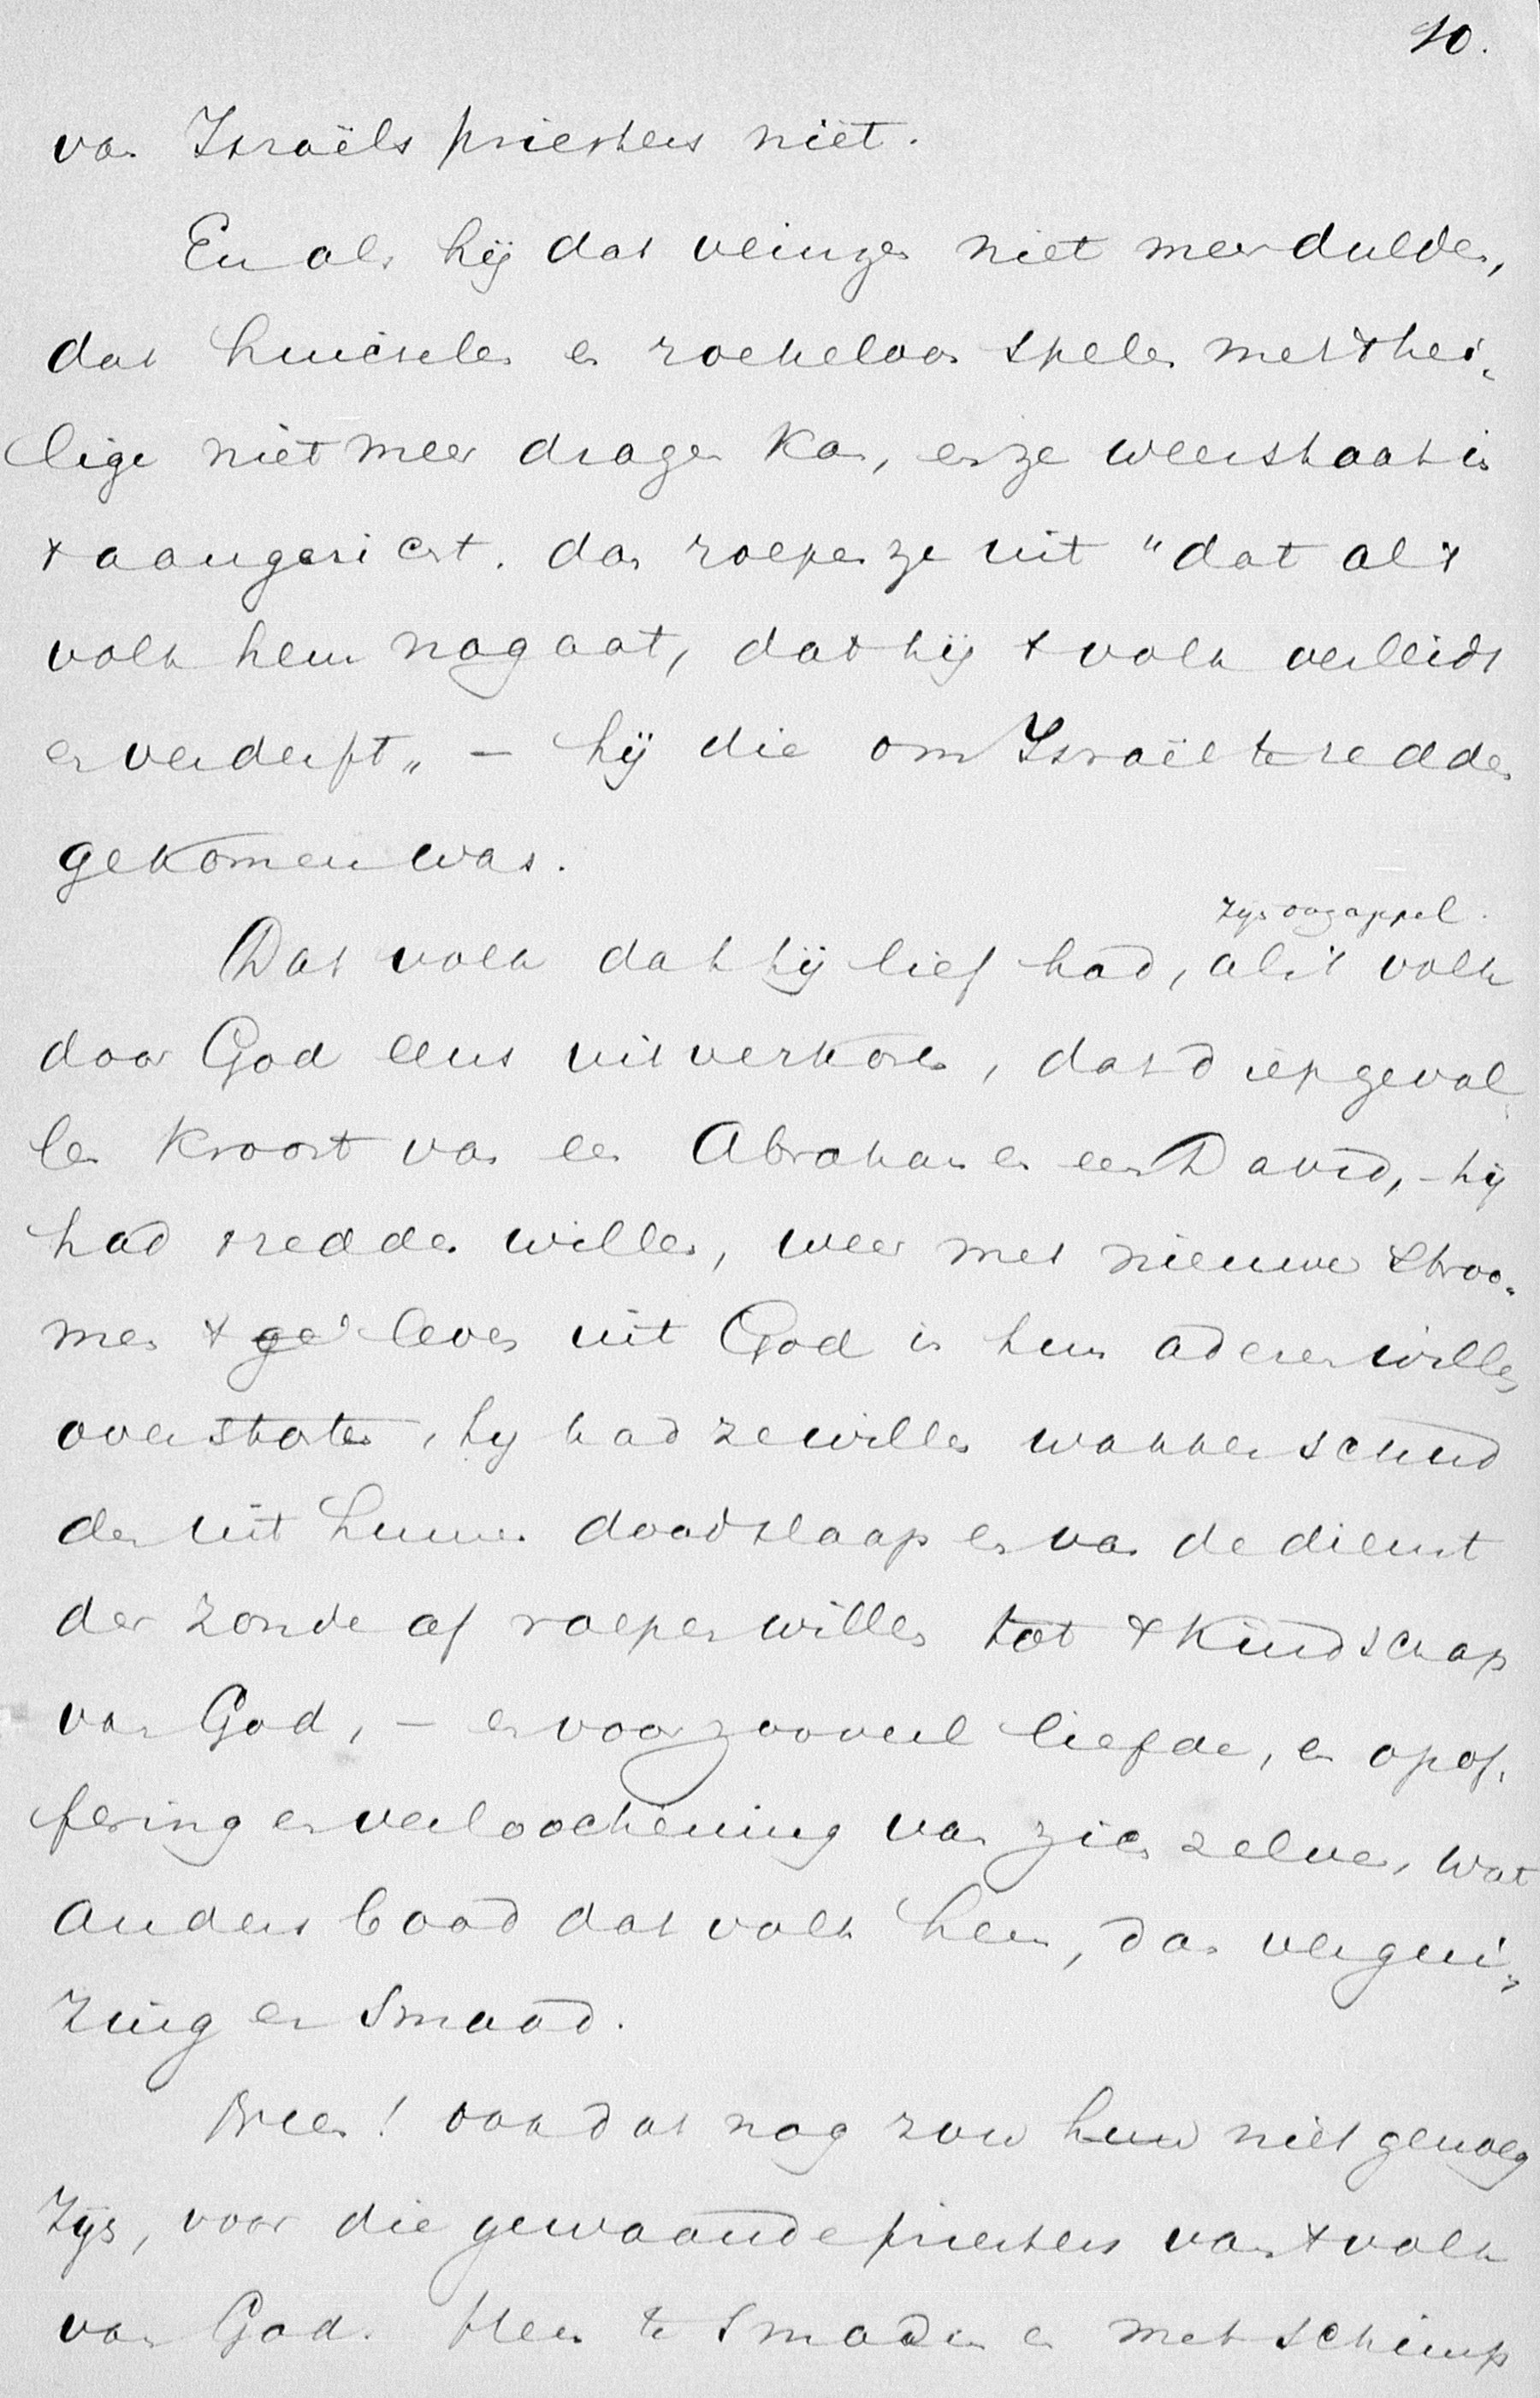 10.
van Israëls priesters niet.
En als hij dat veinzen niet meer dulden,
dat huichelen en roekeloos spelen met 't hei-
lige niet meer dragen kan, en ze weerstaat in
't aangezicht. dan roepen ze uit "dat al 't
volk hem nagaat, dat hij 't volk verleidt
en verderft" - hij die om Israël te redden
gekomen was.
zijn oogappel.
Dat volk dat hij lief had, als 't volk
door God eens uitverkoren, dat diep geval-
len kroost van een Abraham en een David, - hij
had 't redden willen, weer met nieuwe stroo-
men 't ge leven uit God in hun aderen willen
overstorten, hy had ze willen wakker schud
den uit hunnen doodslaap en van de dienst
der zonde af roepen willen tot 't Kindschap
van God, - en voor zooveel liefde, en opof-
fering en verloochening van zich zelven, wat
anders bood dat volk hem, dan vergui-
zing en smaad.
Neen! ook dat nog zou hun niet genoeg
zijn, voor die gewaande priesters van 't volk
van God. Hem te smaden en met schimp